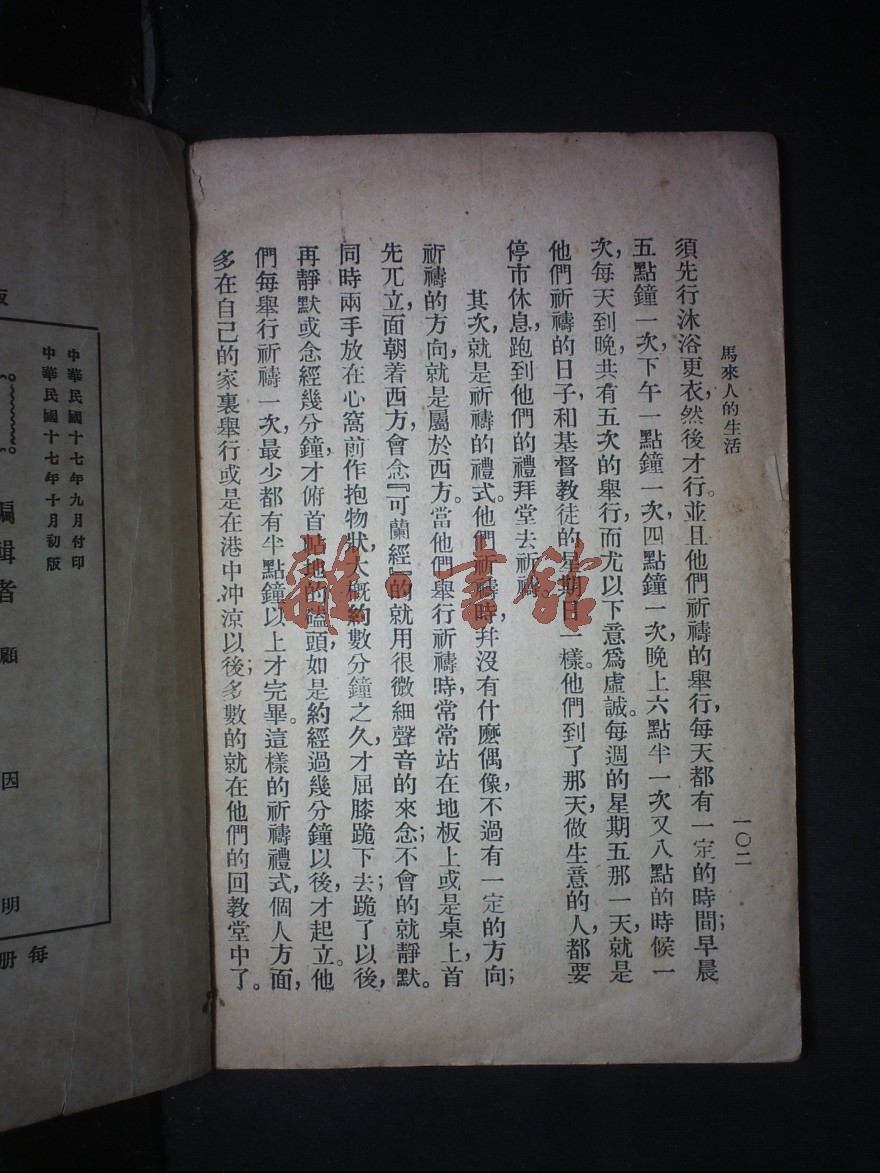 馬來人的生活
一〇二
須先行沐浴更衣,然後才行。並且他們祈禱的舉行,每天都有一定的時間;早晨
五點鐘一次,下午一點鐘一次,四點鐘一次,晚上六點半一次,又八點的時候一
次,每天到晚,共有五次的舉行,而尤以下意爲虛誠。每週的星期五那一天,就是
他們祈禱的日子,和基督教徒的星期日一樣。他們到了那天,做生意的人,都要
停市休息,跑到他們的禮拜堂去祈禱。
其次,就是祈禱的禮式。他們祈禱時,幷沒有什麽偶像,不過有一定的方向;
祈禱的方向,就是屬於西方。當他們舉行祈禱時,常常站在地板上或是桌上,首
先兀立,面朝着西方,會念『可蘭經』的就用很微細聲音的來念;不會的就靜默。
同時兩手放在心窩前作抱物狀,大概約數分鐘之久,才屈膝跪下去;跪了以後,
再靜默或念經幾分鐘,才俯首帖地的磕頭,如是約經過幾分鐘以後,才起立。他
們每舉行祈禱一次,最少都有半點鐘以上才完畢。這樣的祈禱禮式,個人方面,
多在自己的家裏舉行或是在港中冲涼以後;多數的就在他們的回教堂中了。
中華民國十七年九月付印
中華民國十七年十月初版
編輯者 顧因明
每册
雜·書館